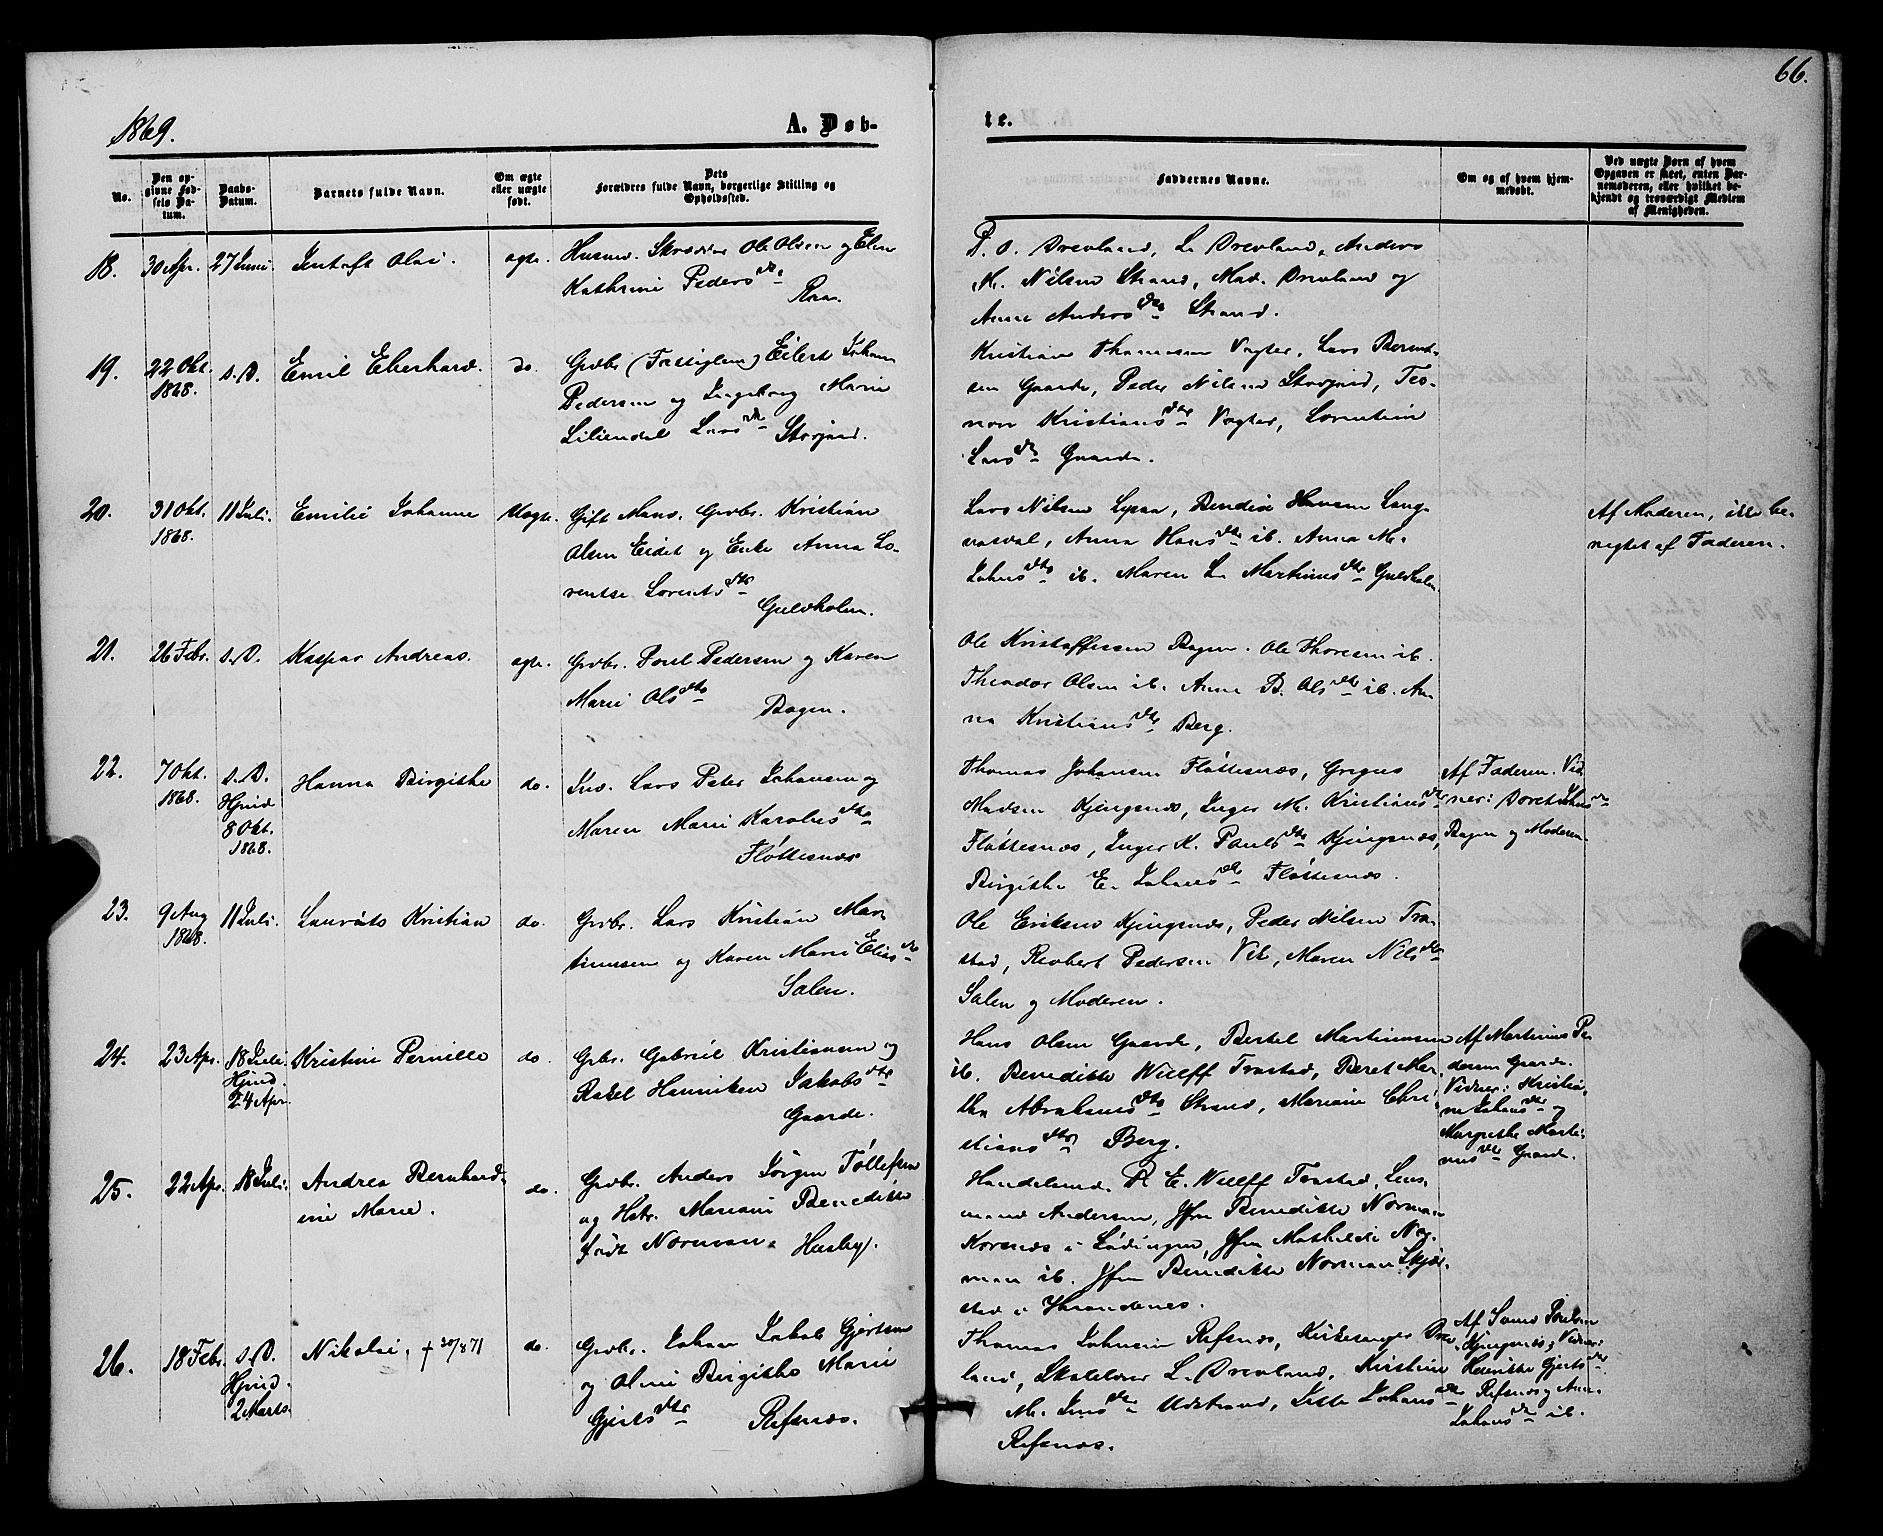 1869.
A. Døb-
te.
66.
No.
Den op-
givne Fød-
sels Da-
tum.
Daabs-
Datum.
Barnets fulde Navn.
Om ægte
eller uægte
født.
Dets
Forældres fulde Navn, borgerlige Stilling og
Opholdssted.
Faddernes Navne.
Om og af hvem hjem-
medøbt.
Ved uægte Børn af hvem
Opgaven er skeet, enten Bar-
nemoderen, eller hvilket be-
kjendt og troværdigt Medlem
af Menigheden.
18.
30 Apr.
27 Juni
Olai.
ægte.
Husm. Skrædder Ole Olsen og Elen
Kathrine Peders dtr
Raa.
P. O. Drevland, L. Drevland, Anders
M. Nilsen Strand, Mad. Drevland og
Anne Anders dtr Strand.
19.
22 Okt.
1868.
s. D.
Emil Eberhard.
do.
Grdbr (Fattiglem) Eilert Johan
Pedersen og Ingeborg Marie
Liliendal Lars dtr Storjord.
Kristian Thomassen Vogter, Lars Berent-
sen Gaarde, Peder Nilsen Storjord, Teo-
nor Kristians dtr Vogter, Lorentine
Lars dtr Gaarde.
20.
31 Okt.
1868.
11 Juli.
Emilie Johanne
Uægte.
Gift Mand. Grdbr. Kristian
Olsen Eidet og Enke Anna Lo-
rentse Lorents dtr
Guldholm.
Lars Nilsen Lysaa, Bendix Hansen Lang-
vasval, Anna Hans dtr ib. Anna M.
Johns dtr ib. Maren L. Martinus dtr Guldholm
Af Moderen, ikke be-
negtet af Faderen.
21.
26 Febr.
s. D.
Kaspar Andreas.
ægte.
Grdbr. Poul Pedersen og Karen
Marie Ols dtr
Bogen.
Ole Kristoffersen Bogen. Ole Thoresen ib.
Theodor Olsen ib. Anne B. Ols dtr ib. An-
na Kristians dtr Berg.
22.
7 Okt.
1868.
s. D.
Hjmd
8 Okt.
1868.
Hanna Birgithe
do.
Ins. Lars Peter Johansen og
Maren Marie Karolus dtr
Fløttesnæs
Thomas Johansen Fløttesnæs, Gregus
Madsen Kjengsnæs, Inger M. Kristians dtr
Fløttesnæs, Inger K. Pauls dtr Kjengsnæs,
Birgithe E. Johans dtr Fløttesnæs.
Af Faderen. Vid-
ner: Doret Johns dtr
Bogen og Moderen
23.
9 Aug
1868.
11 Juli.
Laurits Kristian
do.
Grdbr. Lars Kristian Mar-
tinussen og Karen Marie Elias dtr
Salen.
Ole Eriksen Kjengsnæs, Peder Nilsen Tra-
stad, Reubert Pedersen Vik, Maren Nils dtr
Salen og Moderen.
24.
23 Apr.
18 Juli.
Hjmd.
24 Apr.
Kristine Pernille
do.
Grbr. Gabriel Kristiansen og
Rakel Henriken Jakobs dtr
Gaarde.
Hans Olsen Gaarde, Bertel Martinussen
ib. Benedikte Wulff Trastad, Beret Mar-
tha Abrahams dtr Strand, Mariane Chri-
stians dtr Berg.
Af Martinus Pe-
dersen Gaarde.
Vidner: Kristia-
ne Johans dtr og
Margrethe Marti-
nus dtr Gaarde.
25.
22 Apr.
18 Juli.
Andrea Bernhard-
ine Marie.
do.
Grdbr. Anders Jørgen Tøllefsen
og Hstr. Mariane Benedikte
født Norman, Husby.
Handelsmd. R. E. Wulff Trastad, Lens-
mand Andersen, Jfru Benedikte Norman
Korsnæs i Lødingen, Jfru Mathilde Nor-
man ib. Jfru Benedikte Norman Skjær-
stad i Throndenes.
26.
18 Febr.
s. D.
Hjmd.
2 Marts.
Nikolai, † 30/8 71
do.
Grdbr. Johan Jakob Gjertsen
og Oline Birgithe Marie
Gjerts dtr Refsnæs.
Thomas Johnsen Refsnæs, Kirkesanger Dre-
land, Skolelærer L. Drevland, Kirstine
M. Jens dtr Udstrand, Sille Johans dtr
Refsnæs.
Af Poulsen
Kjengsnæs, Vidner
Henrikke Gjerts dtr
Refsnæs og Anne
Johans dtr ib.